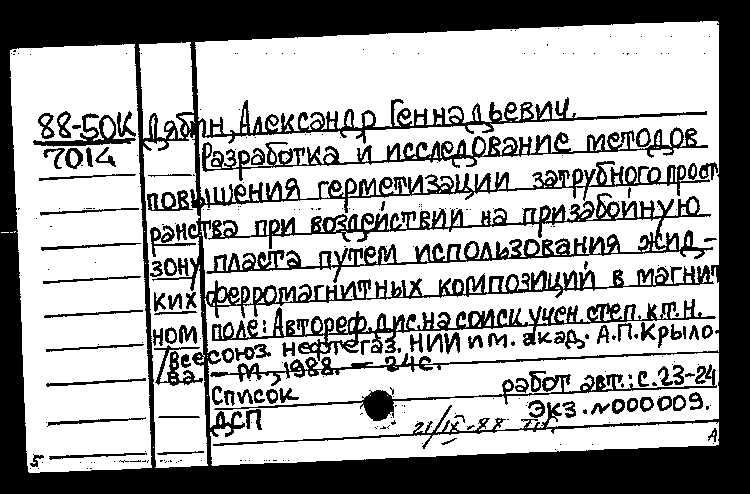 88-50К
7014
Дябин, Александр Геннадьевич.
Разработка и исследование методов
повышения герметизации затрубного прост
ранства при воздействии на призабойную
зону пласта путем использования жид-
ких ферромагнитных композиций в магнит
ном поле: Автореф. дис. на соиск. учен. степ. к.т.н.
/Всесоюз. нефтегаз. НИИ им. акад. А.П. Крыло-
ва. – М., 1988. – 24с.
Список работ авт.: с. 23-24
ДСП Экз. №000009.
21/IX-88
А.
5